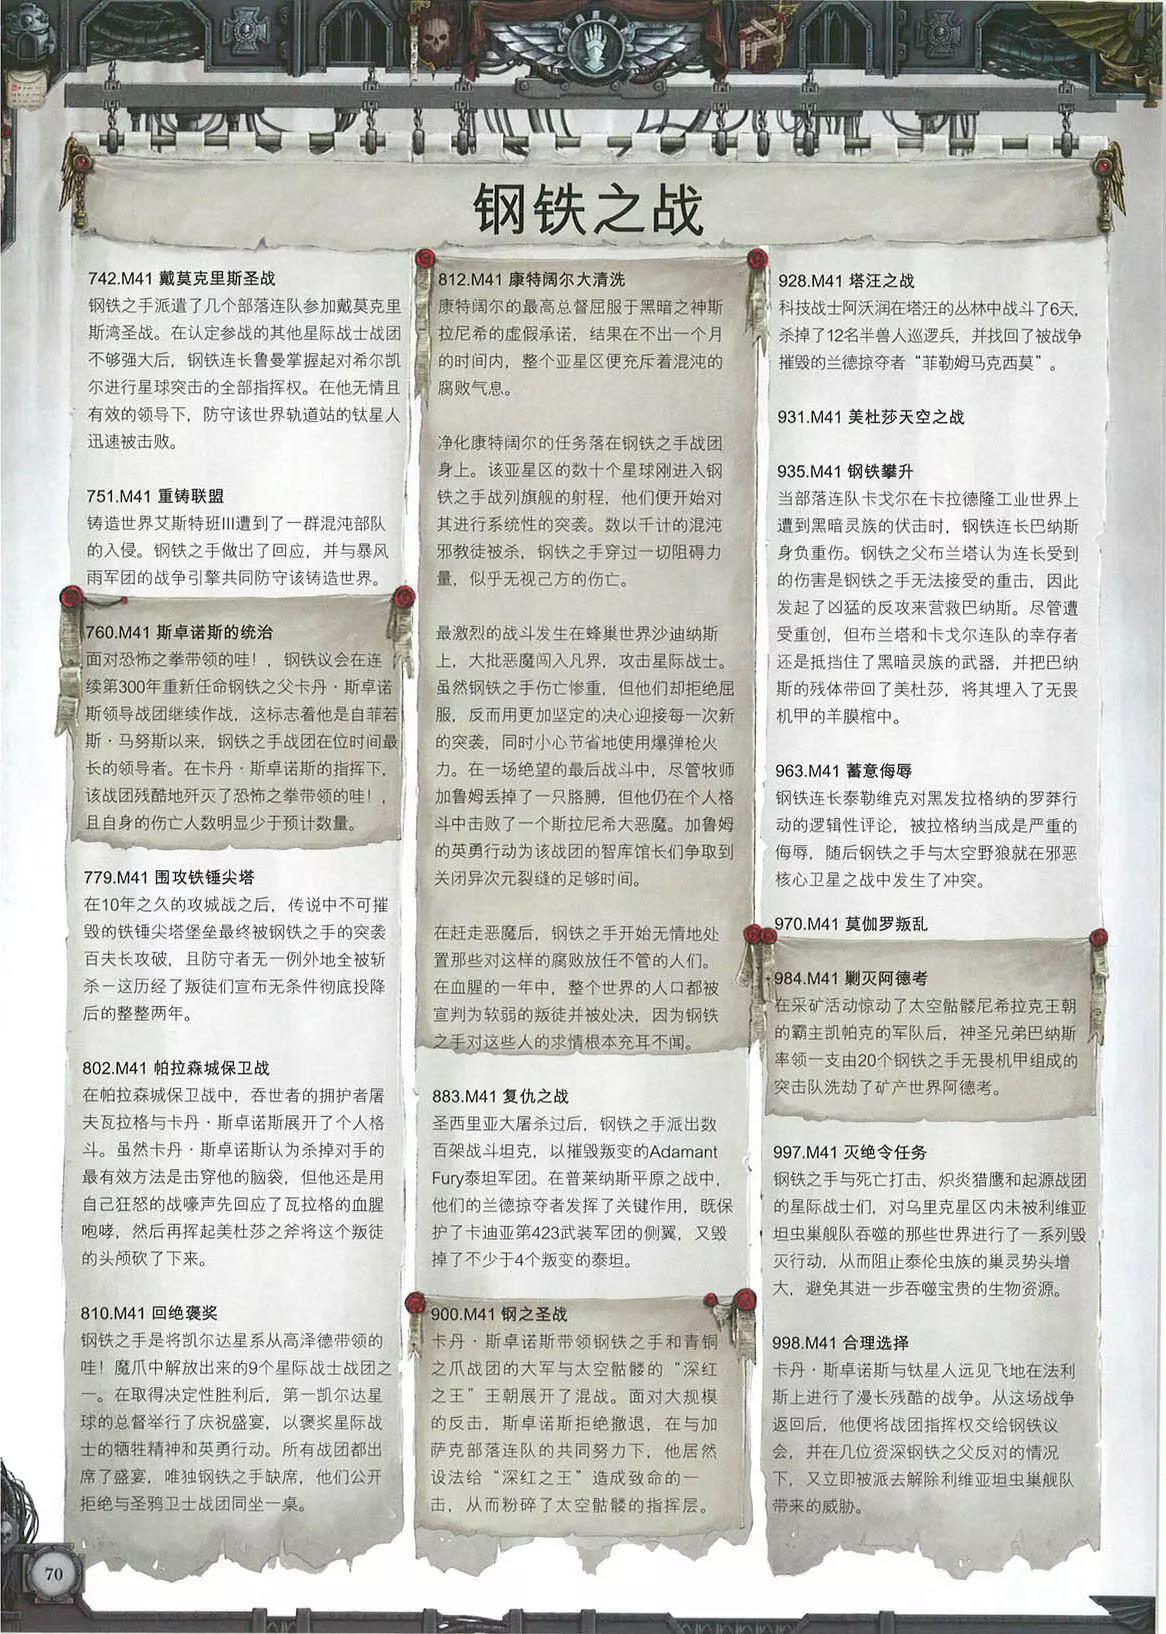 钢铁之战
742.M41 戴莫克里斯圣战
钢铁之手派遣了几个部落连队参加戴莫克里
斯湾圣战。在认定参战的其他星际战士战团
不够强大后，钢铁连长鲁曼掌握起对希尔凯
尔进行星球突击的全部指挥权。在他无情且
有效的领导下，防守该世界轨道站的钛星人
迅速被击败。
751.M41 重铸联盟
铸造世界艾斯特班III遭到了一群混沌部队
的入侵。钢铁之手做出了回应，并与暴风
雨军团的战争引擎共同防守该铸造世界。
760.M41 斯卓诺斯的统治
面对恐怖之拳带领的哇！，钢铁议会在连
续第300年重新任命钢铁之父卡丹·斯卓诺
斯领导战团继续作战，这标志着他是自菲若
斯·马努斯以来，钢铁之手战团在位时间最
长的领导者。在卡丹·斯卓诺斯的指挥下，
该战团残酷地歼灭了恐怖之拳带领的哇！，
且自身的伤亡人数明显少于预计数量。
779.M41 围攻铁锤尖塔
在10年之久的攻城战之后，传说中不可摧
毁的铁锤尖塔堡垒最终被钢铁之手的突袭
百夫长攻破，且防守者无一例外地全被斩
杀—这历经了叛徒们宣布无条件彻底投降
后的整整两年。
802.M41 帕拉森城保卫战
在帕拉森城保卫战中，吞世者的拥护者屠
夫瓦拉格与卡丹·斯卓诺斯展开了个人格
斗。虽然卡丹·斯卓诺斯认为杀掉对手的
最有效方法是击穿他的脑袋，但他还是用
自己狂怒的战嚎声先回应了瓦拉格的血腥
咆哮，然后再挥起美杜莎之斧将这个叛徒
的头颅砍了下来。
810.M41 回绝褒奖
钢铁之手是将凯尔达星系从高泽德带领的
哇！魔爪中解放出来的9个星际战士战团之
一。在取得决定性胜利后，第一凯尔达星
球的总督举行了庆祝盛宴，以褒奖星际战
士的牺牲精神和英勇行动。所有战团都出
席了盛宴，唯独钢铁之手缺席，他们公开
拒绝与圣鸦卫士战团同坐一桌。
812.M41 康特阔尔大清洗
康特阔尔的最高总督屈服于黑暗之神斯
拉尼希的虚假承诺，结果在不出一个月
的时间内，整个亚星区便充斥着混沌的
腐败气息。
净化康特阔尔的任务落在钢铁之手战团
身上。该亚星区的数十个星球刚进入钢
铁之手战列旗舰的射程，他们便开始对
其进行系统性的突袭。数以千计的混沌
邪教徒被杀，钢铁之手穿过一切阻碍力
量，似乎无视己方的伤亡。
最激烈的战斗发生在蜂巢世界沙迪纳斯
上，大批恶魔闯入凡界，攻击星际战士。
虽然钢铁之手伤亡惨重，但他们却拒绝屈
服，反而用更加坚定的决心迎接每一次新
的突袭，同时小心节省地使用爆弹枪火
力。在一场绝望的最后战斗中，尽管牧师
加鲁姆丢掉了一只胳膊，但他仍在个人格
斗中击败了一个斯拉尼希大恶魔。加鲁姆
的英勇行动为该战团的智库馆长们争取到
关闭异次元裂缝的足够时间。
在赶走恶魔后，钢铁之手开始无情地处
置那些对这样的腐败放任不管的人们。
在血腥的一年中，整个世界的人口都被
宣判为软弱的叛徒并被处决，因为钢铁
之手对这些人的求情根本充耳不闻。
883.M41 复仇之战
圣西里亚大屠杀过后，钢铁之手派出数
百架战斗坦克，以摧毁叛变的Adamant
Fury泰坦军团。在普莱纳斯平原之战中，
他们的兰德掠夺者发挥了关键作用，既保
护了卡迪亚第423武装军团的侧翼，又毁
掉了不少于4个叛变的泰坦。
900.M41 钢之圣战
卡丹·斯卓诺斯带领钢铁之手和青铜
之爪战团的大军与太空骷髅的“深红
之王”王朝展开了混战。面对大规模
的反击，斯卓诺斯拒绝撤退，在与加
萨克部落连队的共同努力下，他居然
设法给“深红之王”造成致命的一
击，从而粉碎了太空骷髅的指挥层。
928.M41 塔汪之战
科技战士阿沃润在塔汪的丛林中战斗了6天，
杀掉了12名半兽人巡逻兵，并找回了被战争
摧毁的兰德掠夺者“菲勒姆马克西莫”。
931.M41 美杜莎天空之战
935.M41 钢铁攀升
当部落连队卡戈尔在卡拉德隆工业世界上
遭到黑暗灵族的伏击时，钢铁连长巴纳斯
身负重伤。钢铁之父布兰塔认为连长受到
的伤害是钢铁之手无法接受的重击，因此
发起了凶猛的反攻来营救巴纳斯。尽管遭
受重创，但布兰塔和卡戈尔连队的幸存者
还是抵挡住了黑暗灵族的武器，并把巴纳
斯的残体带回了美杜莎，将其埋入了无畏
机甲的羊膜棺中。
963.M41 蓄意侮辱
钢铁连长泰勒维克对黑发拉格纳的罗莽行
动的逻辑性评论，被拉格纳当成是严重的
侮辱，随后钢铁之手与太空野狼就在邪恶
核心卫星之战中发生了冲突。
970.M41 莫伽罗叛乱
984.M41 剿灭阿德考
在采矿活动惊动了太空骷髅尼希拉克王朝
的霸主凯帕克的军队后，神圣兄弟巴纳斯
率领一支由20个钢铁之手无畏机甲组成的
突击队洗劫了矿产世界阿德考。
997.M41 灭绝令任务
钢铁之手与死亡打击、炽炎猎鹰和起源战团
的星际战士们，对乌里克星区内未被利维亚
坦虫巢舰队吞噬的那些世界进行了一系列毁
灭行动，从而阻止泰伦虫族的巢灵势头增
大，避免其进一步吞噬宝贵的生物资源。
998.M41 合理选择
卡丹·斯卓诺斯与钛星人远见飞地在法利
斯上进行了漫长残酷的战争。从这场战争
返回后，他便将战团指挥权交给钢铁议
会，并在几位资深钢铁之父反对的情况
下，又立即被派去解除利维亚坦虫巢舰队
带来的威胁。
70